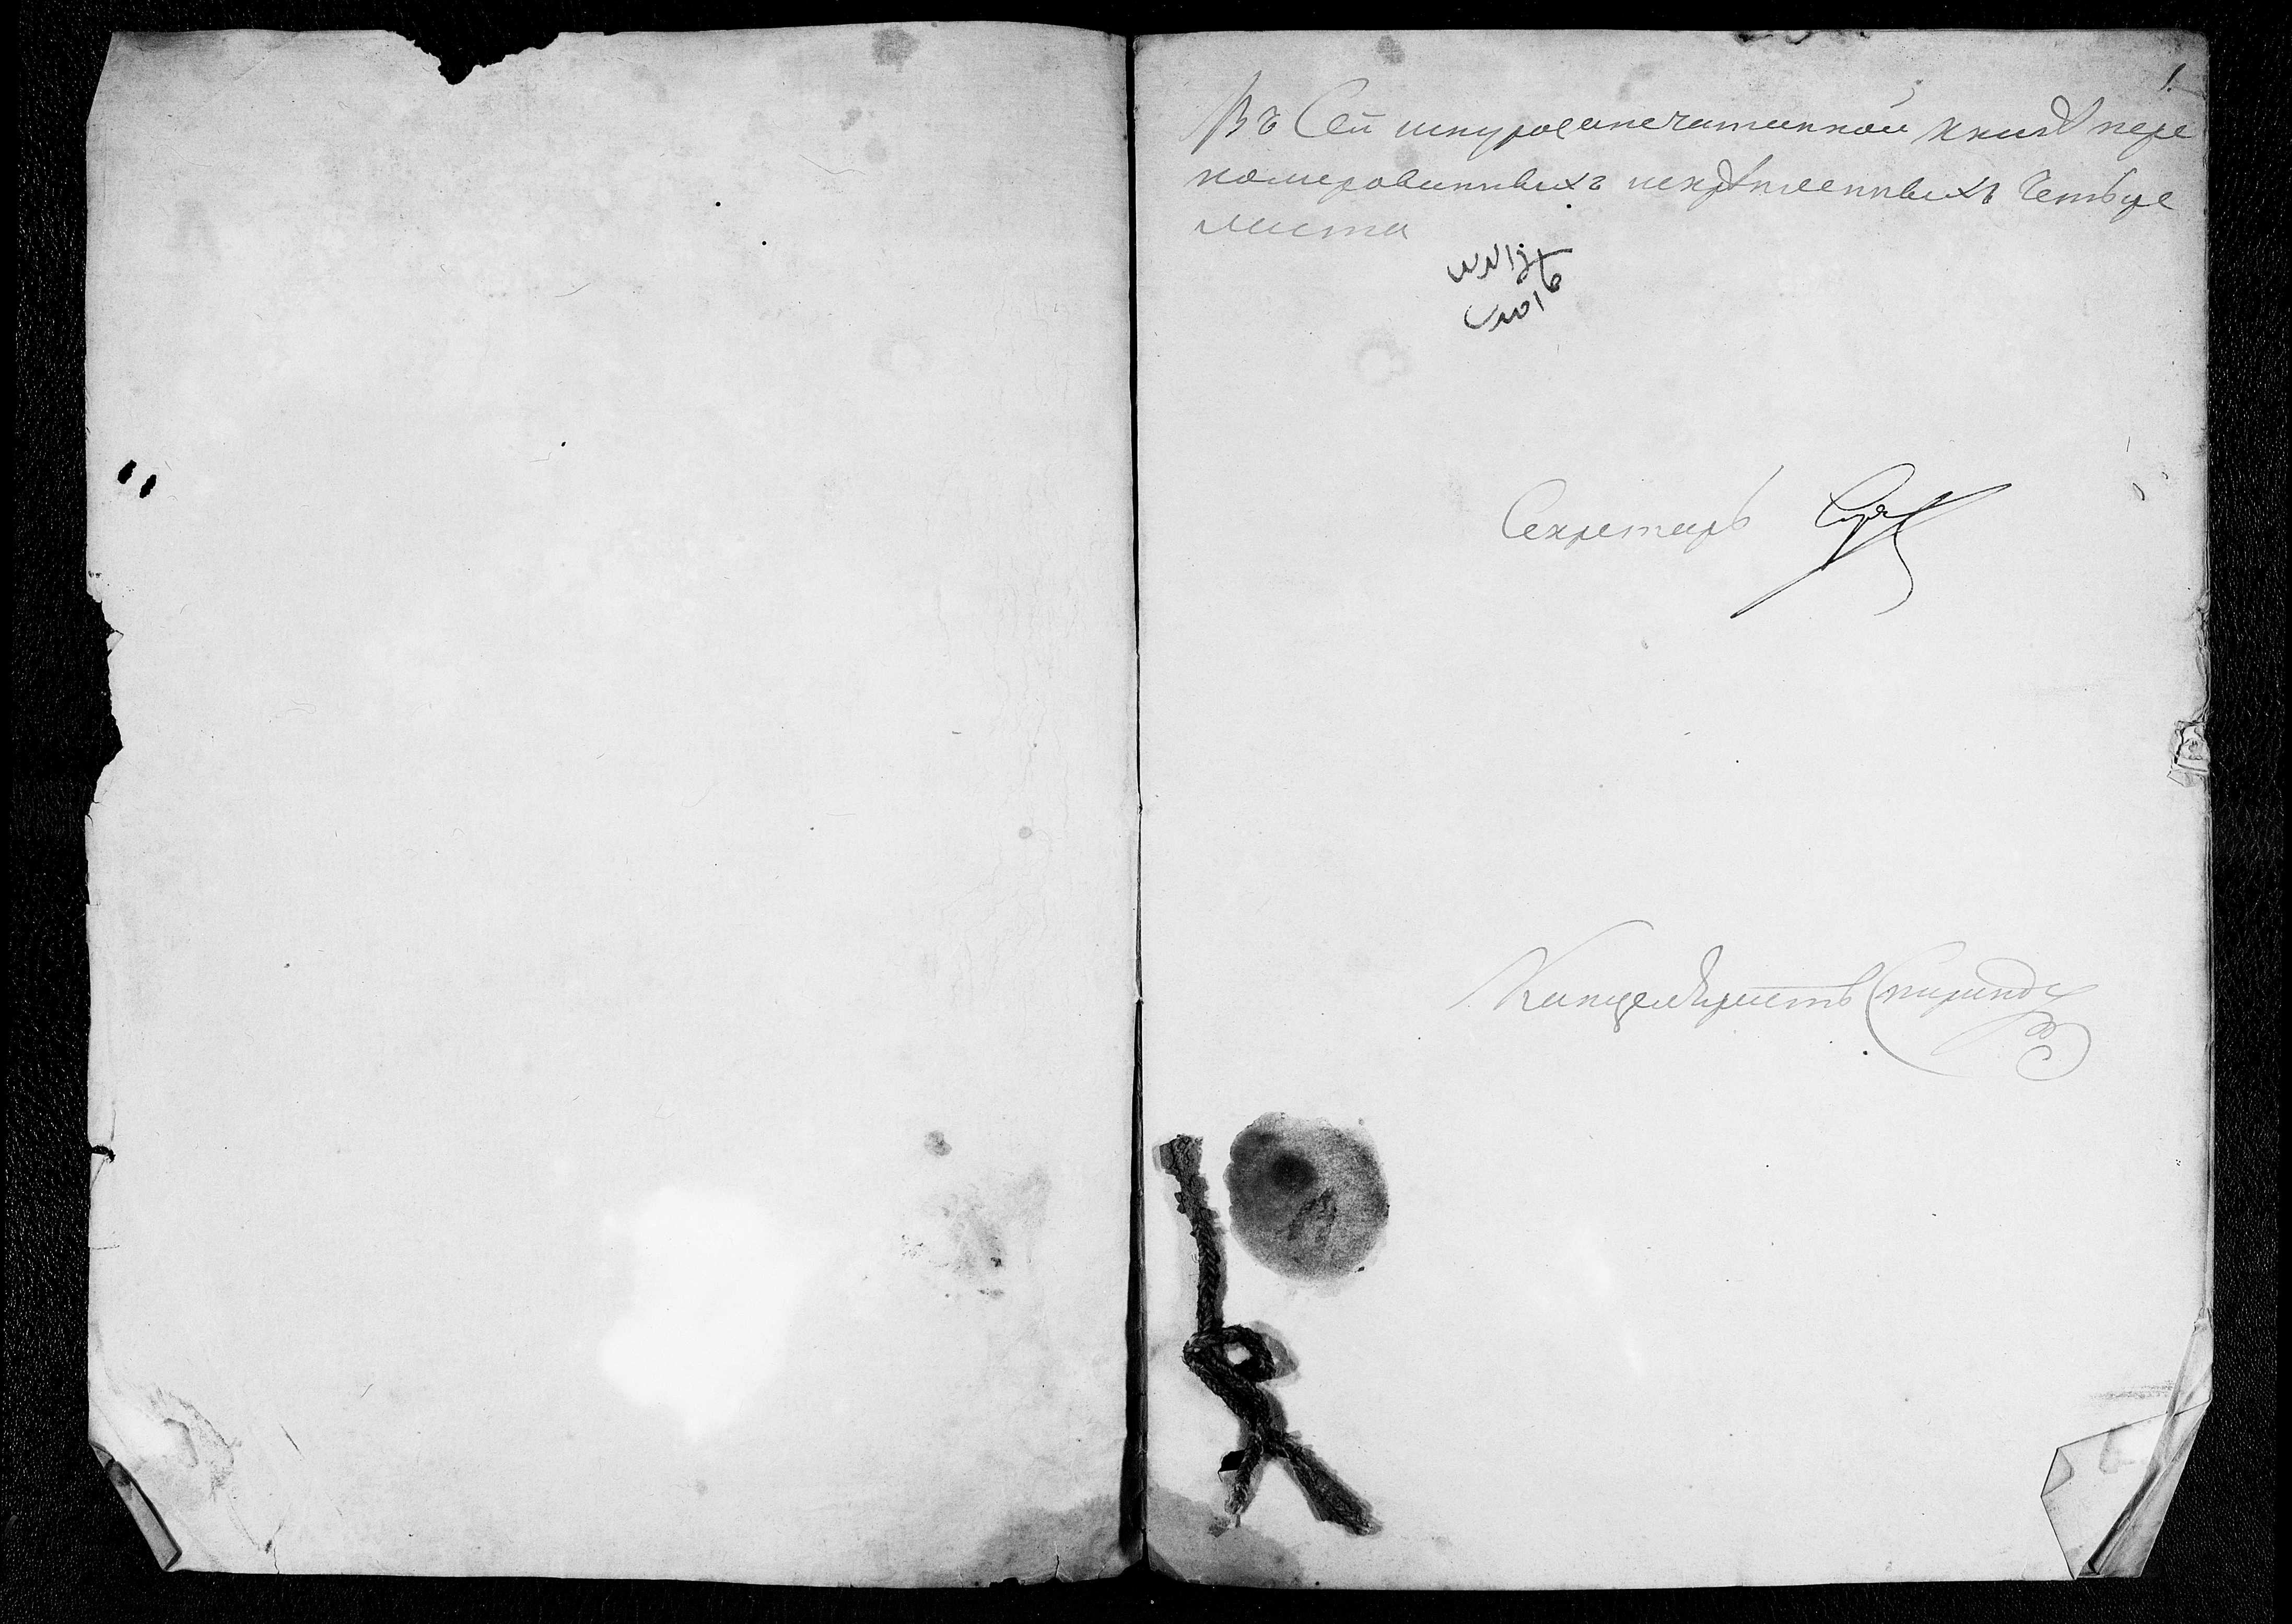 1.
Въ Сей шнурозапечатанной книгѣ пере
номерованныхъ искрѣпленныхъ Четыре
листа
Секретарь
Канцеляристъ